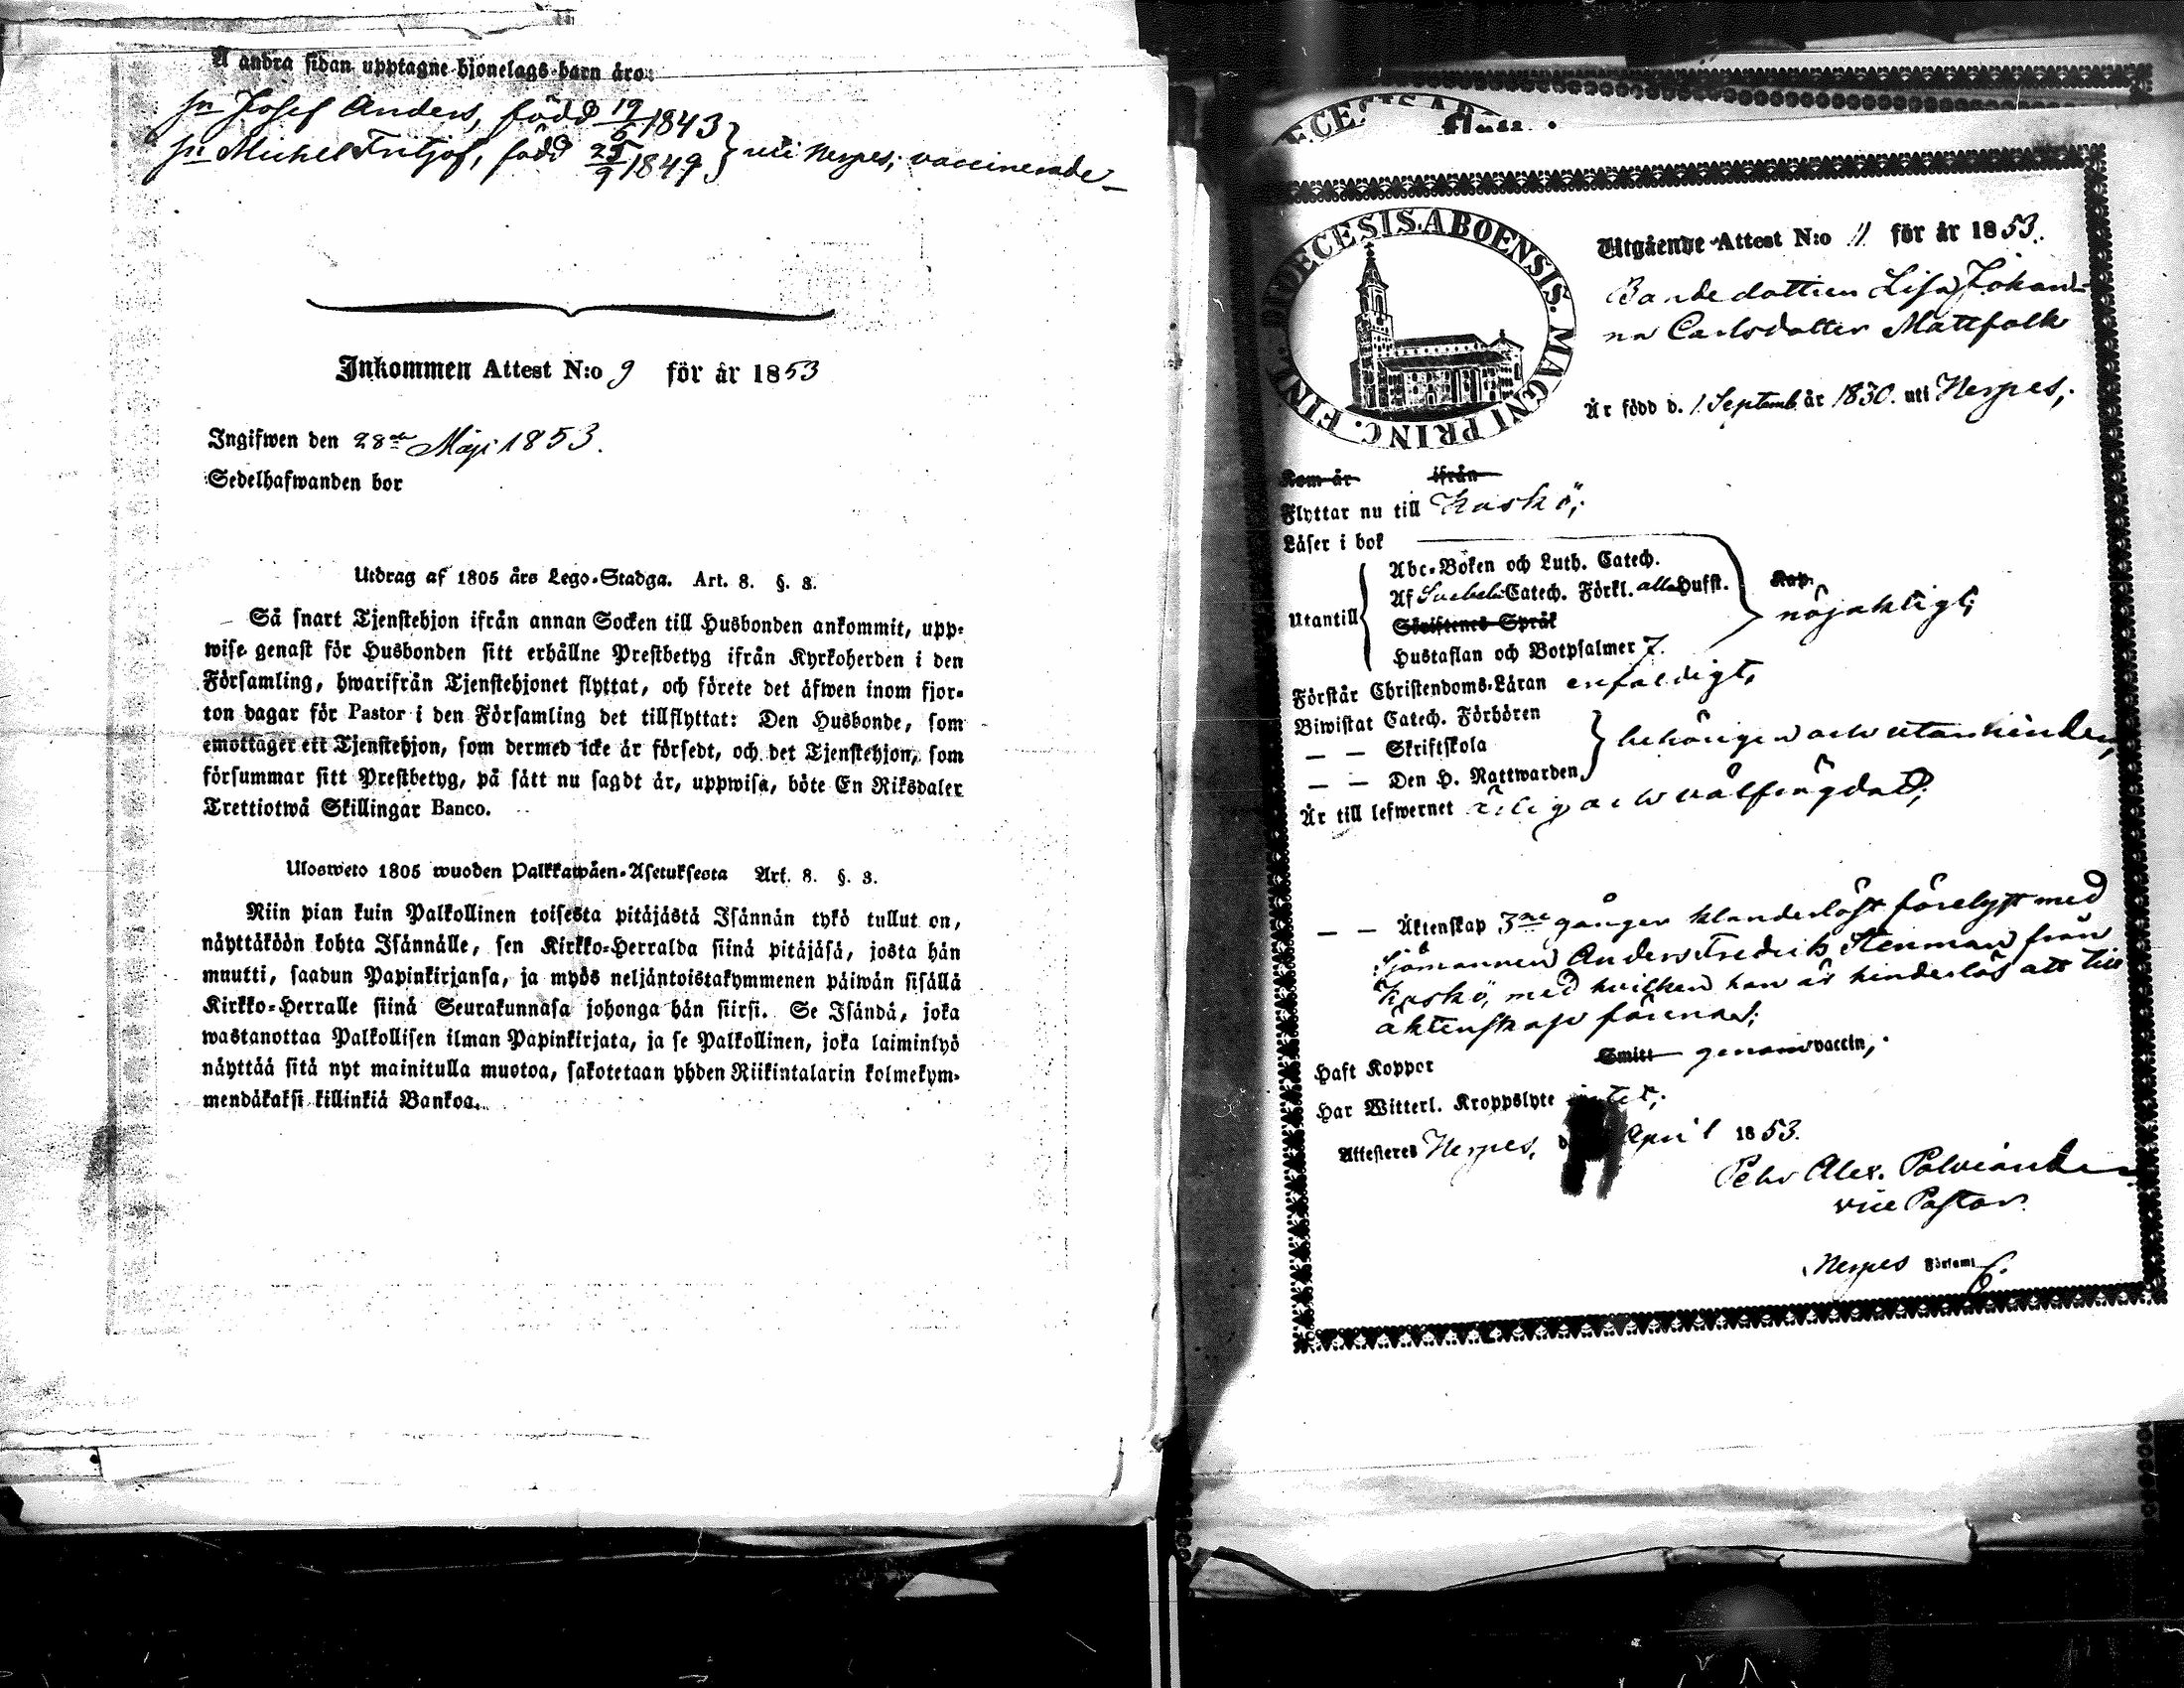 Å andra sidan upptagne hjonelags-barn äro:
sn Josef Anders, född 19/6 1843
sn Michel Fritjof, född 25/9 1849 } uti Nerpes; vaccinerade
Inkommen Attest N:o 9 för år 1853
Ingifwen den 28de Maji 1853.
Sedelhafwanden bor
Utdrag af 1805 års Lego-Stadga. Art. 8. §. 3.
Så snart Tjenstehjon ifrån annan Socken till Husbonden ankommit, upp-
wise genast för Husbonden sitt erhållne Prestbetyg ifrån Kyrkoherden i den
Församling, hwarifrån Tjenstehjonet flyttat, och förete det äfwen inom fjor-
ton dagar för Pastor i den Församling det tillflyttat: Den Husbonde, som
emottager ett Tjenstehjon, som dermed icke är försedt, och det Tjenstehjon, som
försummar sitt Prestbetyg, på sätt nu sagdt är, uppwisa, böte En Riksdaler
Trettiotwå Skillingar Banco.
Ulosweto 1805 wuoden Palkkawäen-Asetuksesta Art. 8. §. 3.
Niin pian kuin Palkollinen toisesta pitäjästä Isännän tykö tullut on,
näyttäköön kohta Isännälle, sen Kirkko-Herralda siinä pitäjäsä, josta hän
muutti, saadun Papinkirjansa, ja myös neljäntoistakymmenen päiwän sisällä
Kirkko-Herralle siinä Seurakunnasa johonga hän siirsi. Se Isändä, joka
wastanottaa Palkollisen ilman Papinkirjata, ja se Palkollinen, joka laiminlyö
näyttää sitä nyt mainitulla muotoa, sakotetaan yhden Riikintalarin kolmekym-
mendäkaksi killinkiä Bankoa.
DIOECESIS. ABOENSIS. MAGNI PRINC. FINL.
Utgående Attest N:o 11 för år 1853.
Bondedottren Lisa Johan-
na Carlsdotter Mattfolk
Är född d. 1 Septemb. år 1830. uti Nerpes;
Kom år ifrån
Flyttar nu till Kaskö;
Läser i bok
Abc-Boken och Luth. Catech.
Utantill Af Svebeli Catech. Förkl. alla Hufst. Kap.
nöjaktigt;
Skriftenes Språk
Hustaflan och Botpsalmer 7.
Förstår Christendoms-Läran enfaldigt,
Biwistat Catech. Förhören
— — Skriftskola
— — Den H. Nattwarden
Är till lefwernet ärlig och välfrägdad;
— — Äktenskap 3ne gånger klanderlöst förelyst med
Sjömannen Anders Fredrik Stenman från
Kaskö, med hvilken hon är hinderlös att till
äktenskap förenas;
Haft Koppor Smitt genom vaccin,
Har Witterl. Kroppslyte intet;
Attesteres Nerpes, d April 1853.
Petr Alex.
vice Pastor.
Nerpes Församl.